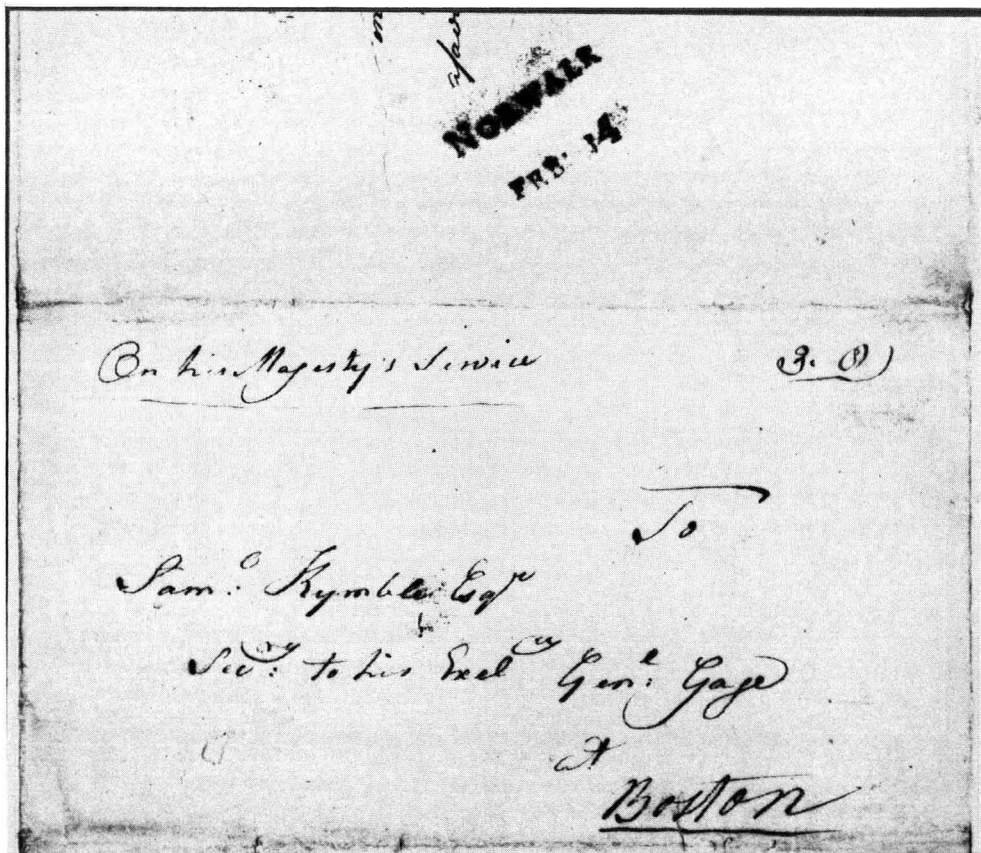 NORWALK
FEB: 14
On his Majesty's Service
To
Sam.l Kymble Esqr
Secry: to his Exelcy Gen.l Gage
at
Boston